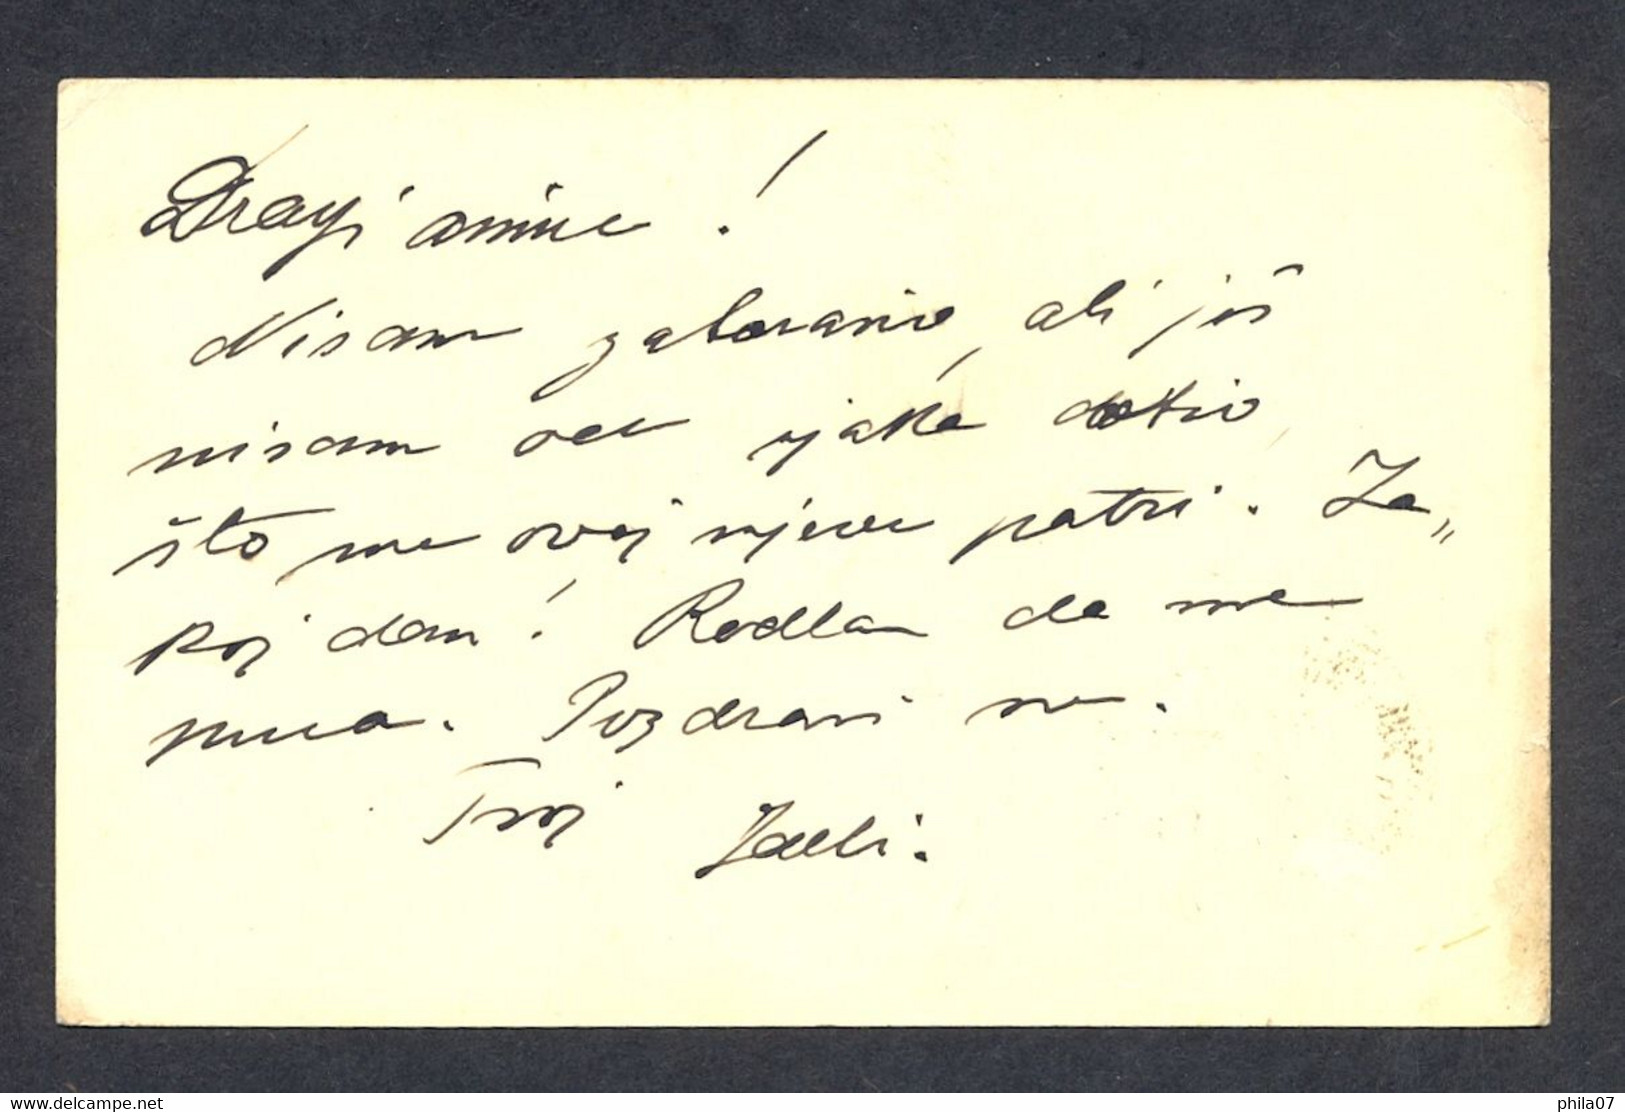 Dragi amice!
Nisam zaboravio, ali još
nisam od vjaka dobio
što me ovaj mjesec patri. Za„
koj dan! Radlan da me
. Pozdravi sve.
Tvoj
www.delcampe.net phila07